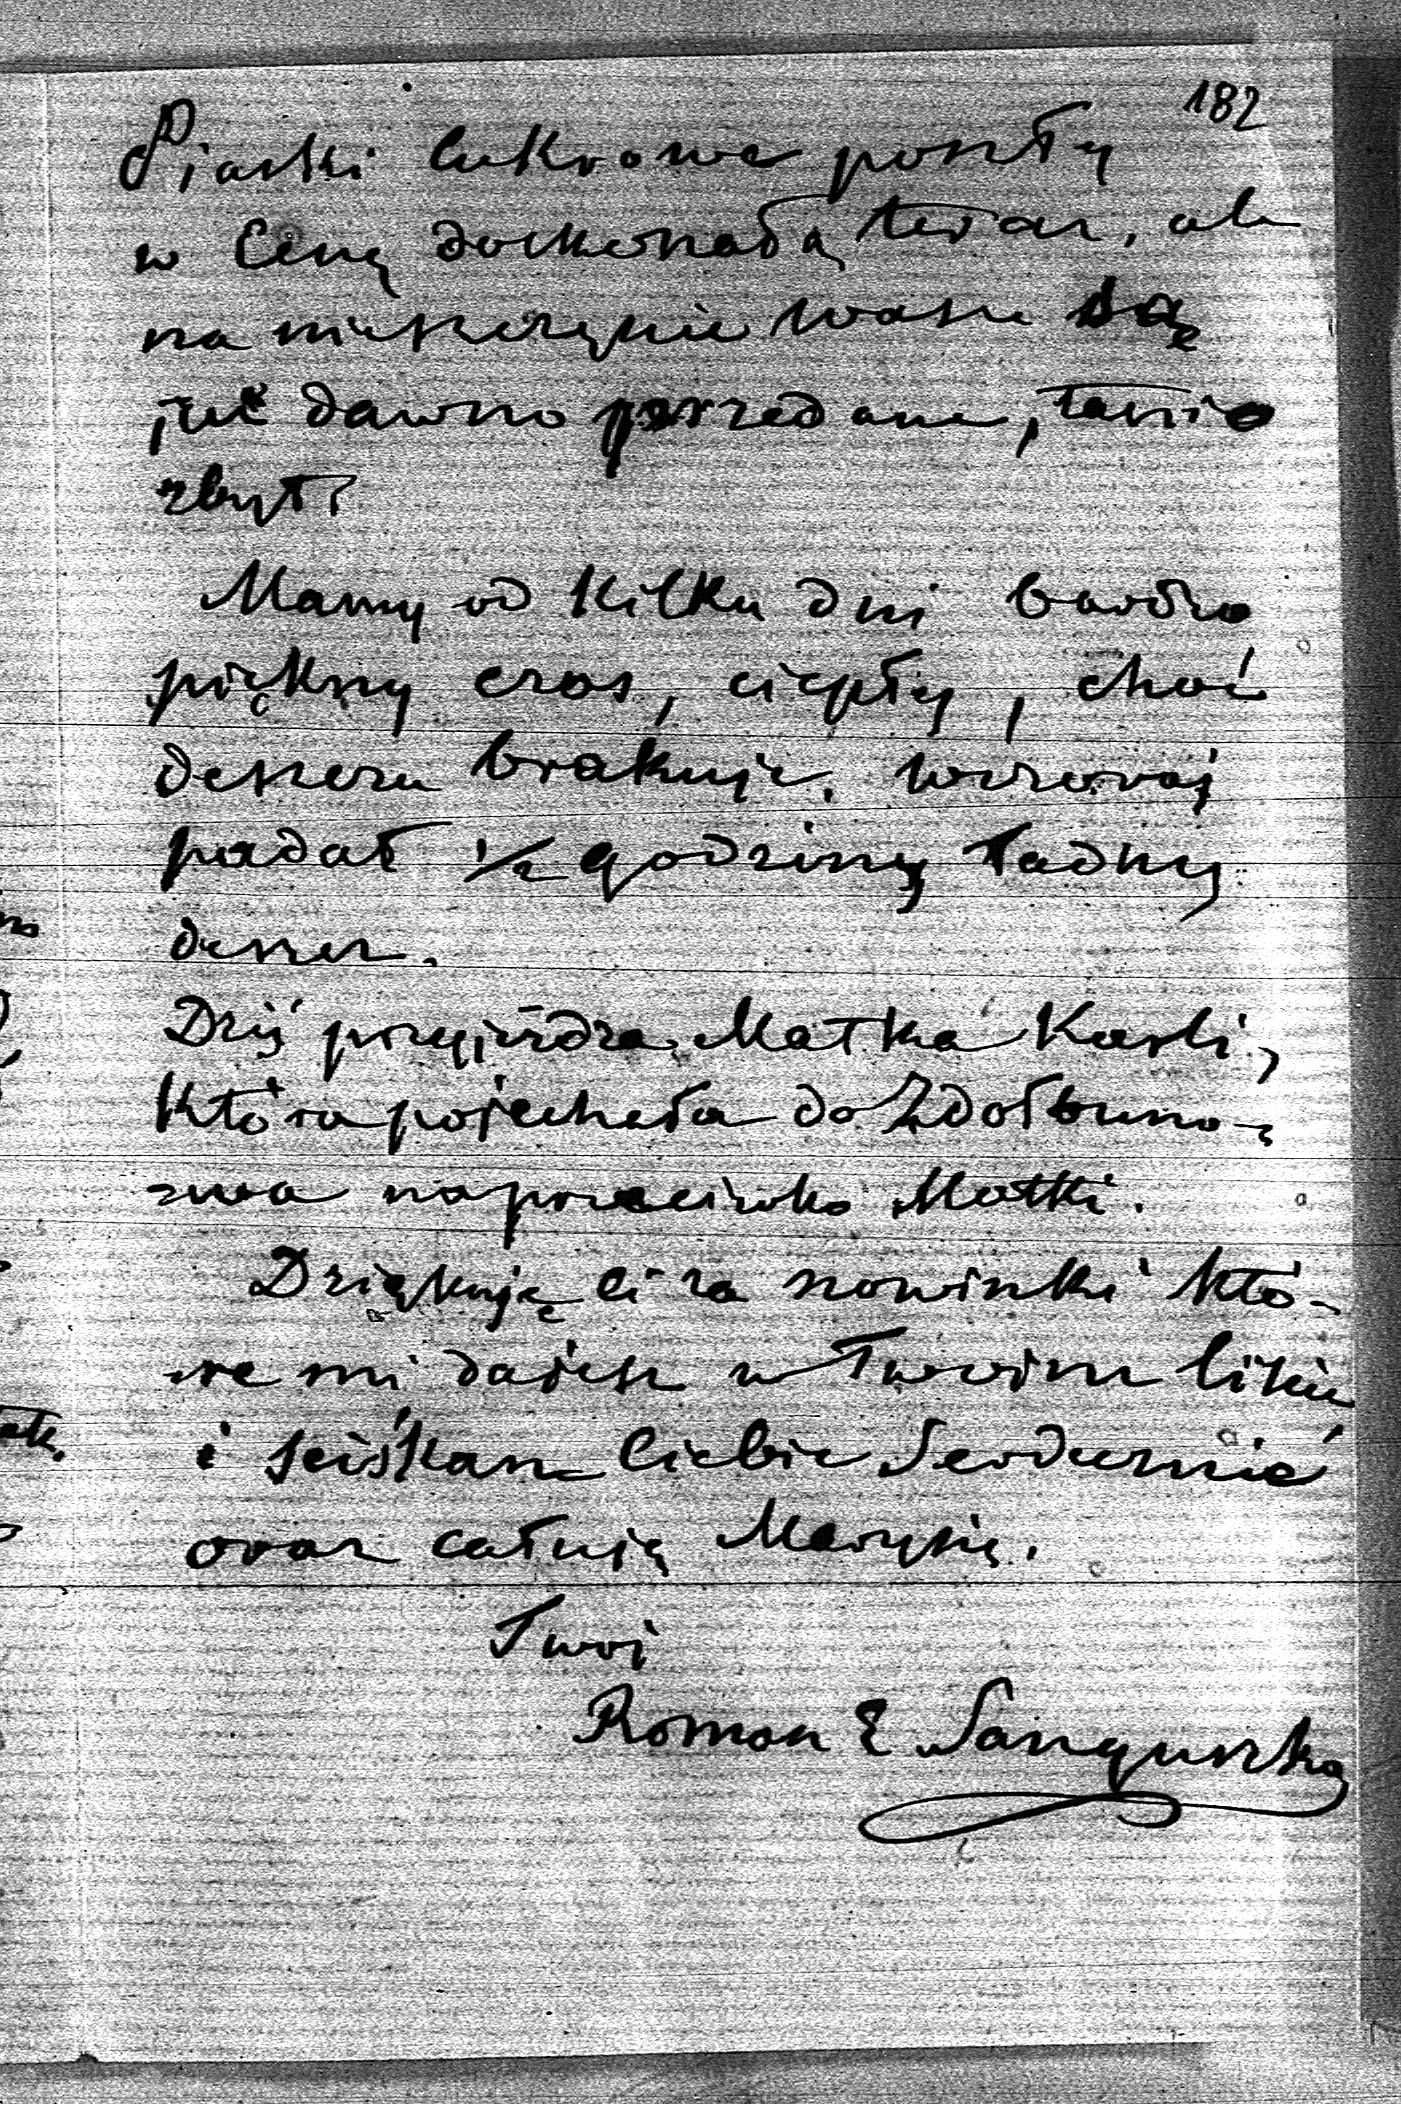 182
Piaski cukrowe poszły
w cenę doskonałą teraz, ale
na nieszczęście wasze są
już dawno przedane, tanio
zbyt?
Mamy od kilku dni bardzo
piękny czas, ciepły, choć
deszczu brakuje. wczoraj
padał ½ godziny ładny
deszcz.
Dziś przyjeżdża Matka Karli,
która pojechała do Zdołbuno-
wa naprzeciwko Matki.
Dziękuję ci za nowinki któ-
re mi dajesz w Twoim liście
i ściskam Ciebie Serdecznie
oraz całuję Marysię.
Twój
Roman E Sanguszko